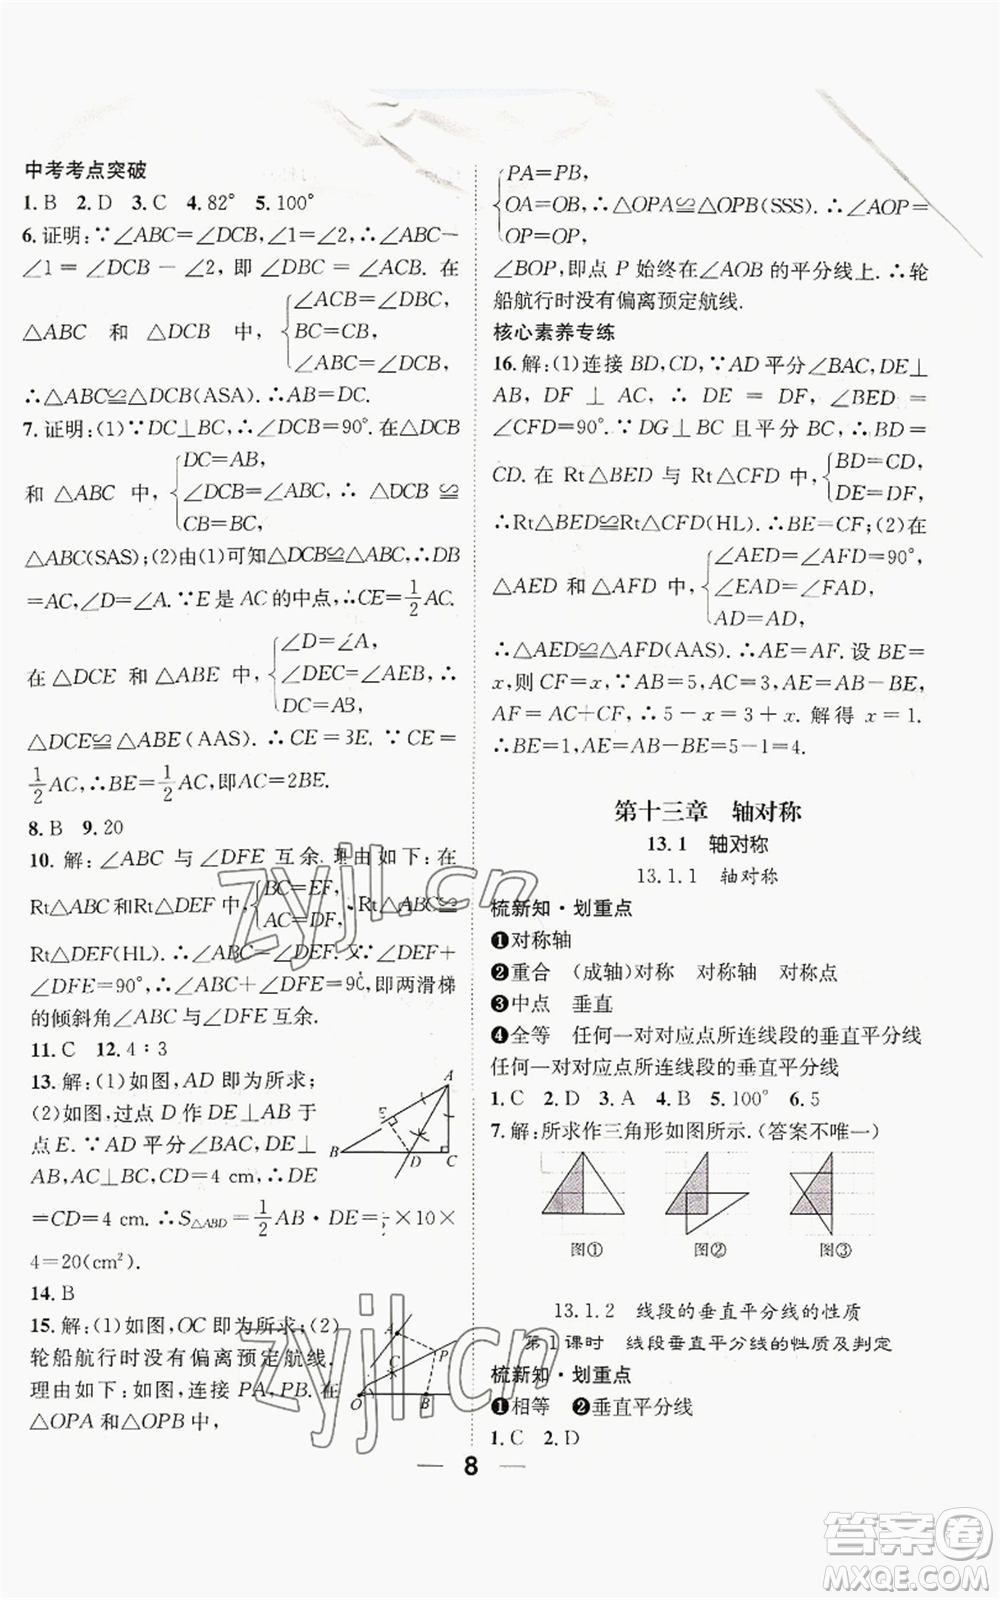 中考考点突破
1. B 2. D 3. C 4. 82° 5. 100°
6. 证明:∵∠ABC=∠DCB,∠1=∠2,∴∠ABC-
∠1=∠DCB-∠2,即∠DBC=∠ACB. 在
△ABC 和 △DCB 中,
∠ACB=∠DBC,
BC=CB,
∠ABC=∠DCB,
∴△ABC≌△DCB(ASA).∴AB=DC.
7. 证明:(1)∵DC⊥BC,∴∠DCB=90°.在△DCB
和 △ABC 中,
DC=AB,
∠DCB=∠ABC,
CB=BC,
∴ △DCB ≌
△ABC(SAS);(2)由(1)可知△DCB≌△ABC,∴DB
=AC,∠D=∠A.∵E 是 AC 的中点,∴CE=1/2AC.
在 △DCE 和 △ABE 中,
∠D=∠A,
∠DEC=∠AEB,
DC=AB,
∴
△DCE≌△ABE(AAS).∴CE=BE.∵CE=
1/2AC,∴BE=1/2AC,即AC=2BE.
8. B 9. 20
10. 解:∠ABC 与 ∠DFE 互余. 理由如下:在
Rt△ABC和Rt△DEF 中,
BC=EF,
AC=DF,
∴Rt△ABC≌
Rt△DEF(HL).∴∠ABC=∠DEF.又∵∠DEF+
∠DFE=90°,∴∠ABC+∠DFE=90°,即两滑梯
的倾斜角∠ABC与∠DFE互余.
11. C 12. 4∶3
13. 解:(1)如图,AD 即为所求;
(2)如图,过点 D 作 DE⊥AB 于
点 E.∵AD 平分∠BAC,DE⊥
AB,AC⊥BC,CD=4 cm,∴DE
=CD=4 cm.∴S△ABD=1/2AB·DE=1/2×10×
4=20(cm²).
A
E
B
D
C
14. B
15. 解:(1)如图,OC 即为所求;(2)
轮船航行时没有偏离预定航线.
理由如下:如图,连接 PA,PB. 在
△OPA 和 △OPB 中,
A
P
C
O
B
PA=PB,
OA=OB,
OP=OP,
∴△OPA≌△OPB(SSS).∴∠AOP=
∠BOP,即点 P 始终在∠AOB 的平分线上.∴轮
船航行时没有偏离预定航线.
核心素养专练
16. 解:(1)连接 BD,CD,∵AD 平分∠BAC,DE⊥
AB, DF ⊥ AC, ∴ DE = DF, ∠BED =
∠CFD=90°.∵DG⊥BC 且平分 BC,∴BD=
CD. 在 Rt△BED 与 Rt△CFD 中,
BD=CD,
DE=DF,
∴Rt△BED≌Rt△CFD(HL).∴BE=CF;(2)在
△AED 和 △AFD 中,
∠AED=∠AFD=90°,
∠EAD=∠FAD,
AD=AD,
∴△AED≌△AFD(AAS).∴AE=AF. 设 BE=
x,则 CF=x,∵AB=5,AC=3,AE=AB-BE,
AF=AC+CF,∴5-x=3+x. 解得 x=1.
∴BE=1,AE=AB-BE=5-1=4.
第十三章 轴对称
13.1 轴对称
13.1.1 轴对称
梳新知·划重点
❶对称轴
❷重合 (成轴)对称 对称轴 对称点
❸中点 垂直
❹全等 任何一对对应点所连线段的垂直平分线
任何一对对应点所连线段的垂直平分线
1. C 2. D 3. A 4. B 5. 100° 6. 5
7. 解:所求作三角形如图所示.(答案不唯一)
图① 图② 图③
13.1.2 线段的垂直平分线的性质
第1课时 线段垂直平分线的性质及判定
梳新知·划重点
❶相等 ❷垂直平分线
1. C 2. D
8
zyjl.cn
zyjl.cn
答案卷
MXQE.COM